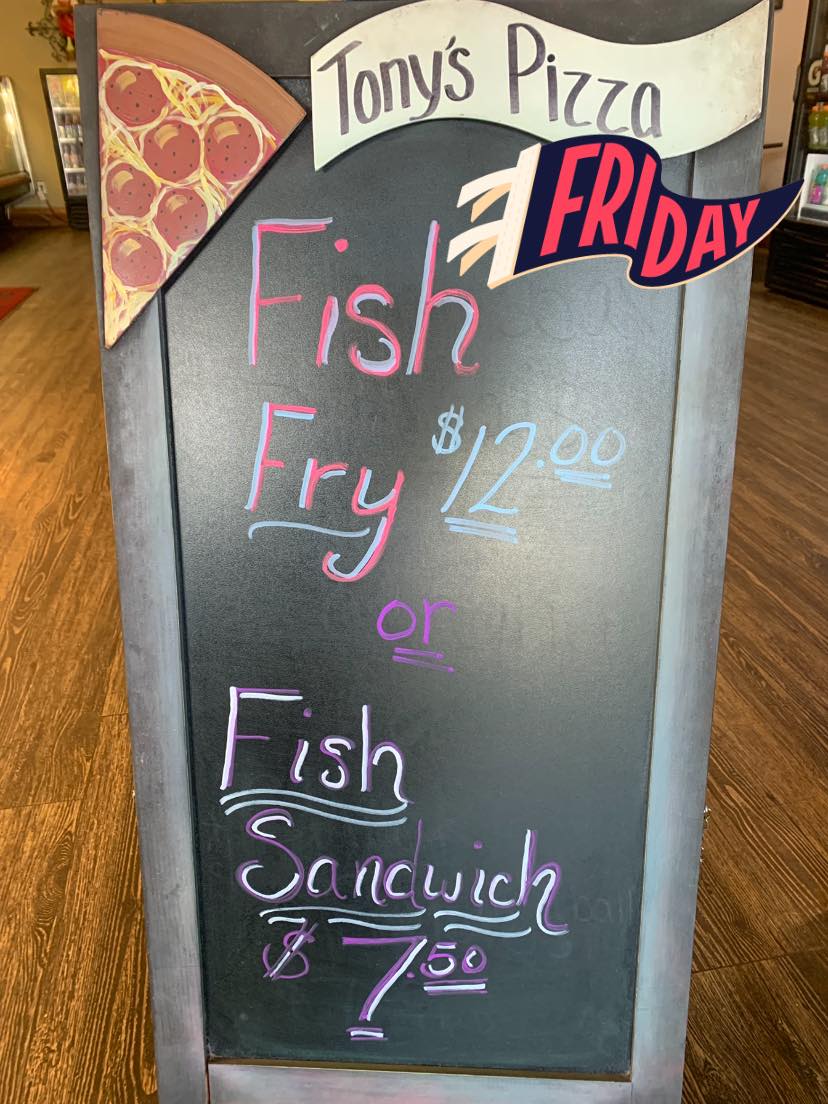 Tony's Pizza
FRIDAY
Fish
Fry $12.00
or
Fish
Sandwich
$7.50